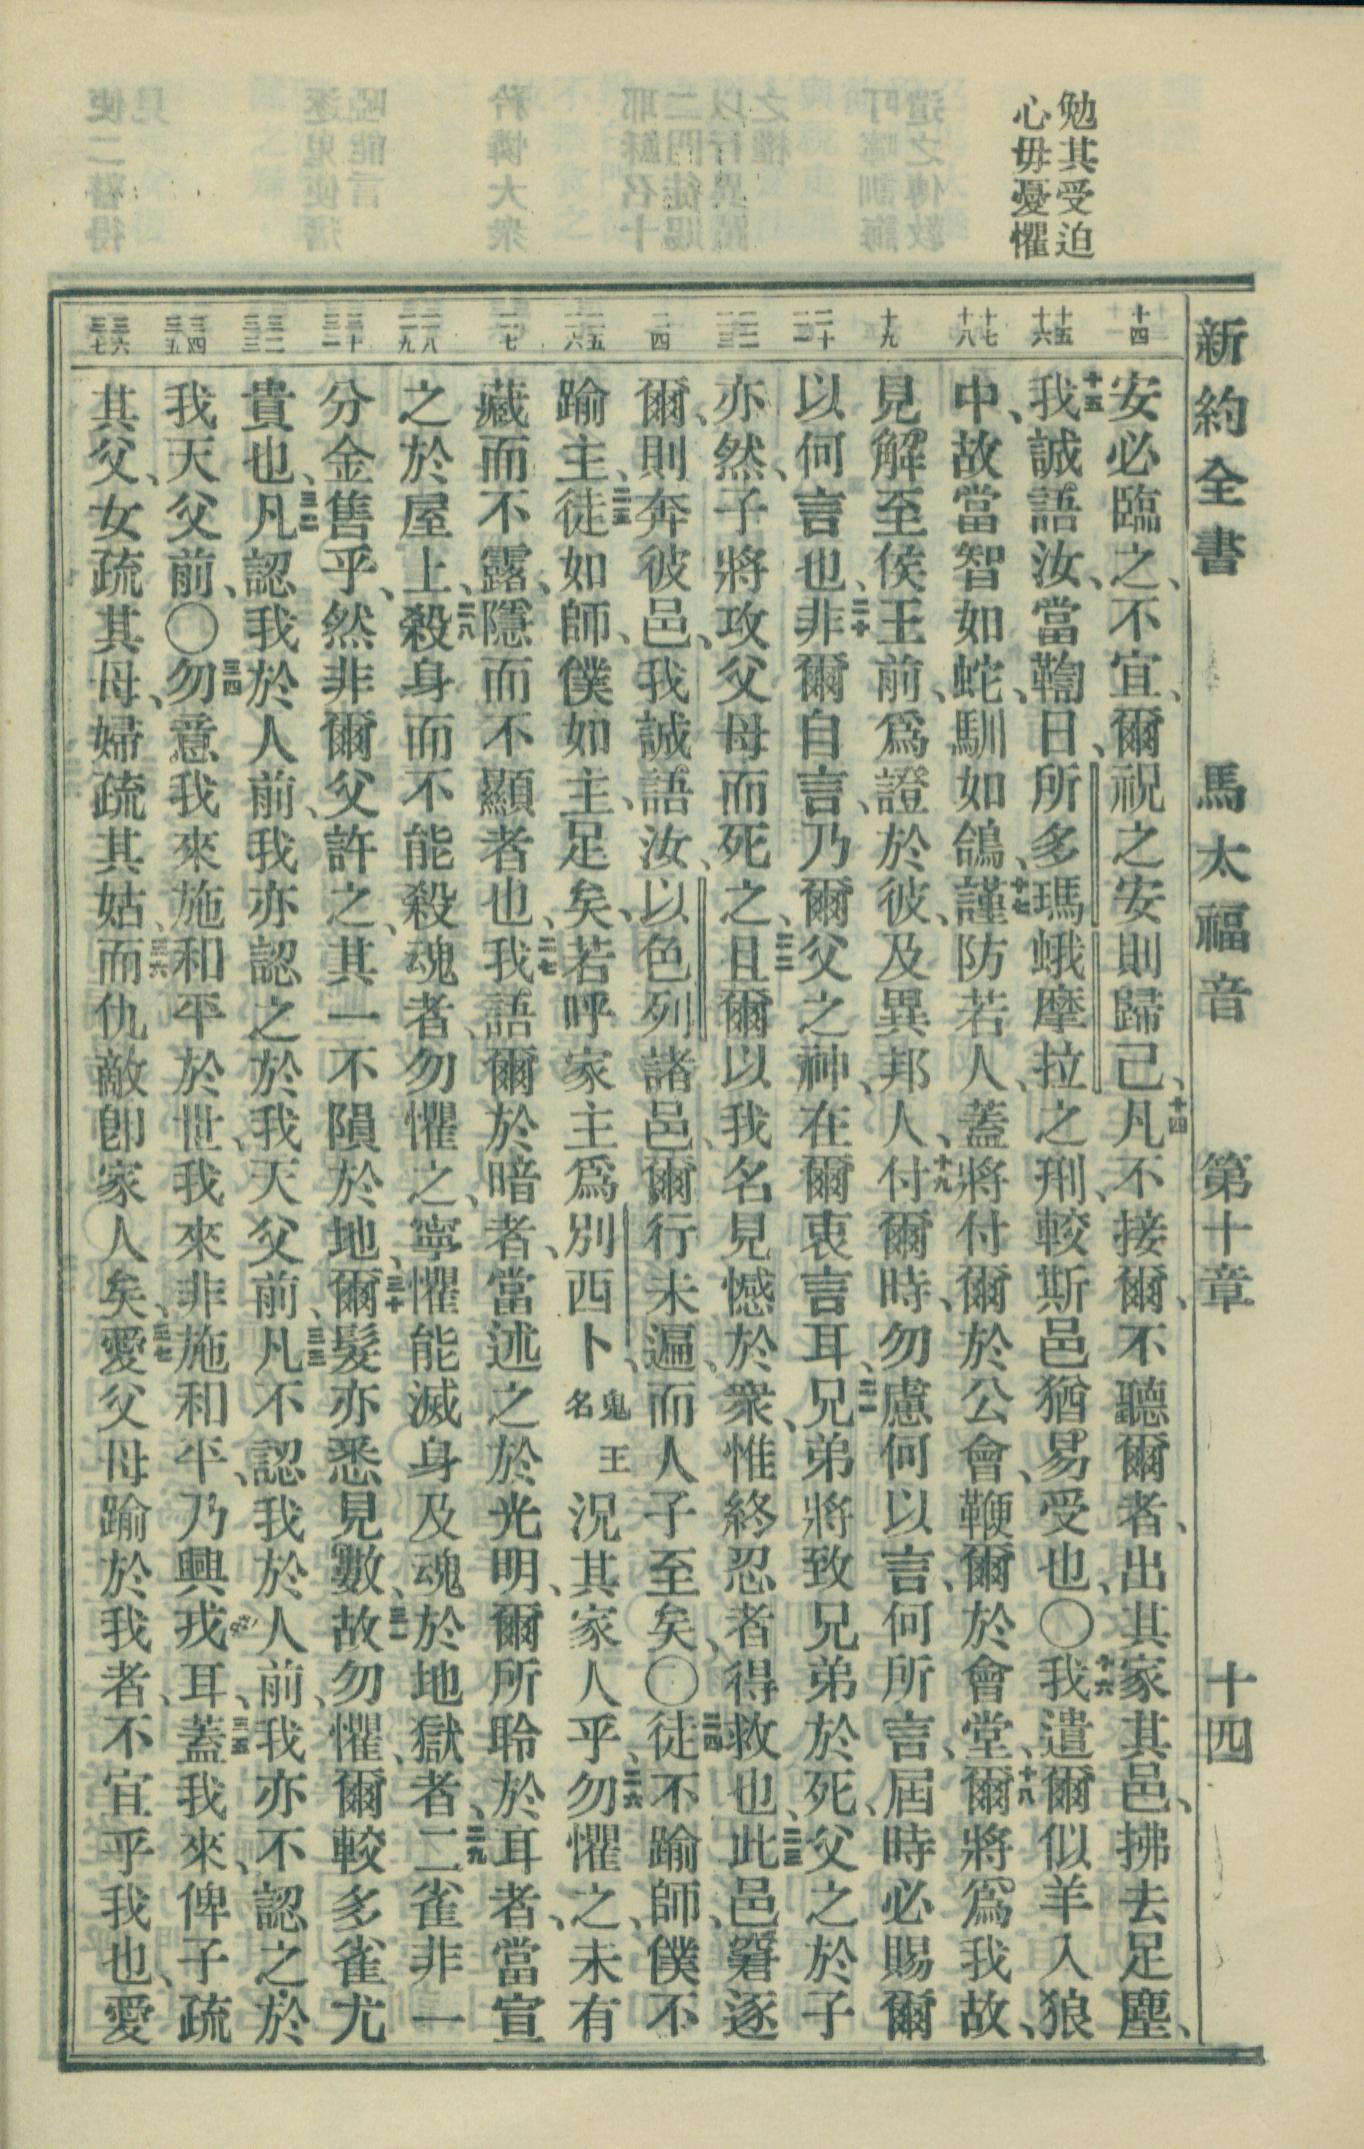 新約全書 馬太福音 第十章 十四
勉其受迫
心毋憂懼
十四
十五 十六
十七 十八
十九
二十 二一
二二 二三
二四
二五 二六
二七
二八 二九
三十 三一
三二 三三
三四 三五
三六 三七
安必臨之、不宜、爾祝之安則歸己、十四凡不接爾、不聽爾者、出其家其邑、拂去足塵、
十五我誠語汝、當鞫日、所多瑪蛾摩拉之刑、較斯邑猶易受也、〇十六我遣爾似羊入狼
中、故當智如蛇、馴如鴿、十七謹防若人、蓋將付爾於公會、鞭爾於會堂、十八爾將爲我故、
見解至侯王前、爲證於彼、及異邦人、十九付爾時、勿慮何以言、何所言、屆時必賜爾
以何言也、二十非爾自言、乃爾父之神、在爾衷言耳、二一兄弟將致兄弟於死、父之於子
亦然、子將攻父母而死之、二二且爾以我名見憾於衆、惟終忍者得救也、二三此邑窘逐
爾、則奔彼邑、我誠語汝、以色列諸邑、爾行未遍、而人子至矣、〇二四徒不踰師、僕不
踰主、二五徒如師、僕如主、足矣、若呼家主爲別西卜、鬼王名況其家人乎、二六勿懼之、未有
藏而不露、隱而不顯者也、二七我語爾於暗者、當述之於光明、爾所聆於耳者、當宣
之於屋上、二八殺身而不能殺魂者、勿懼之、寧懼能滅身及魂於地獄者、二九二雀非一
分金售乎、然非爾父許之、其一不隕於地、三十爾髮亦悉見數、三一故勿懼、爾較多雀尤
貴也、三二凡認我於人前、我亦認之於我天父前、三三凡不認我於人前、我亦不認之於
我天父前、〇三四勿意我來施和平於世、我來非施和平、乃興戎耳、三五蓋我來、俾子疏
其父、女疏其母、婦疏其姑、三六而仇敵卽家人矣、三七愛父母踰於我者、不宜乎我也、愛